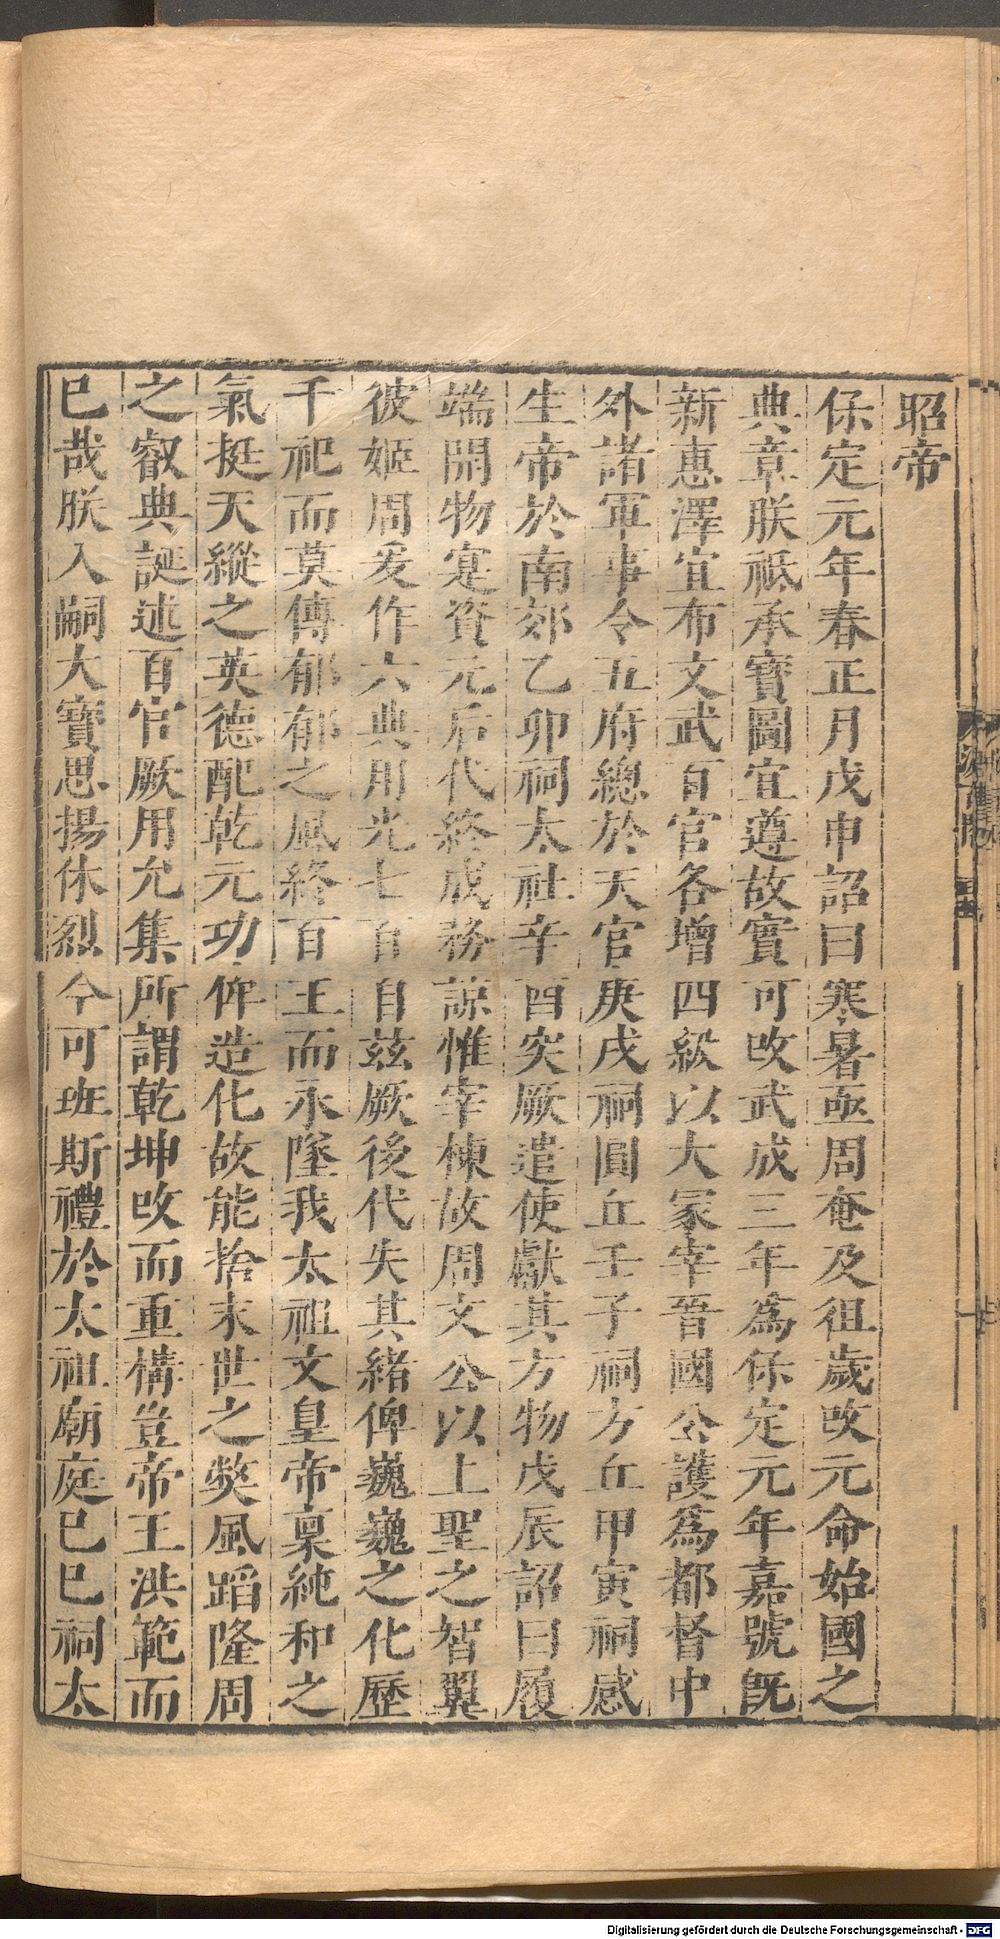 昭帝
保定元年春正月戊申詔曰寒暑亟周奄及徂歲改元命始國之
典章朕祗承寶圖宜遵故實可改武成三年爲保定元年嘉號旣
新惠澤宜布文武百官各增四級以大冢宰晉國公護爲都督中
外諸軍事令五府總於天官庚戌祠圓丘壬子祠方丘甲寅祠感
生帝於南郊乙卯祠太社辛酉突厥遣使獻其方物戊辰詔曰履
端開物寔資元后代終成務諒惟宰棟故周文公以上聖之智翼
彼姬周爰作六典用光七百自茲厥後代失其緒俾巍巍之化歷
千祀而莫傳郁郁之風終百王而永墜我太祖文皇帝稟純和之
氣挺天縱之英德配乾元功侔造化故能捨末世之獘風蹈隆周
之叡典誕述百官厥用允集所謂乾坤改而重構豈帝王洪範而
已哉朕入嗣大寶思揚休烈今可班斯禮於太祖廟庭已巳祠太
Digitalisierung gefördert durch die Deutsche Forschungsgemeinschaft - DFG